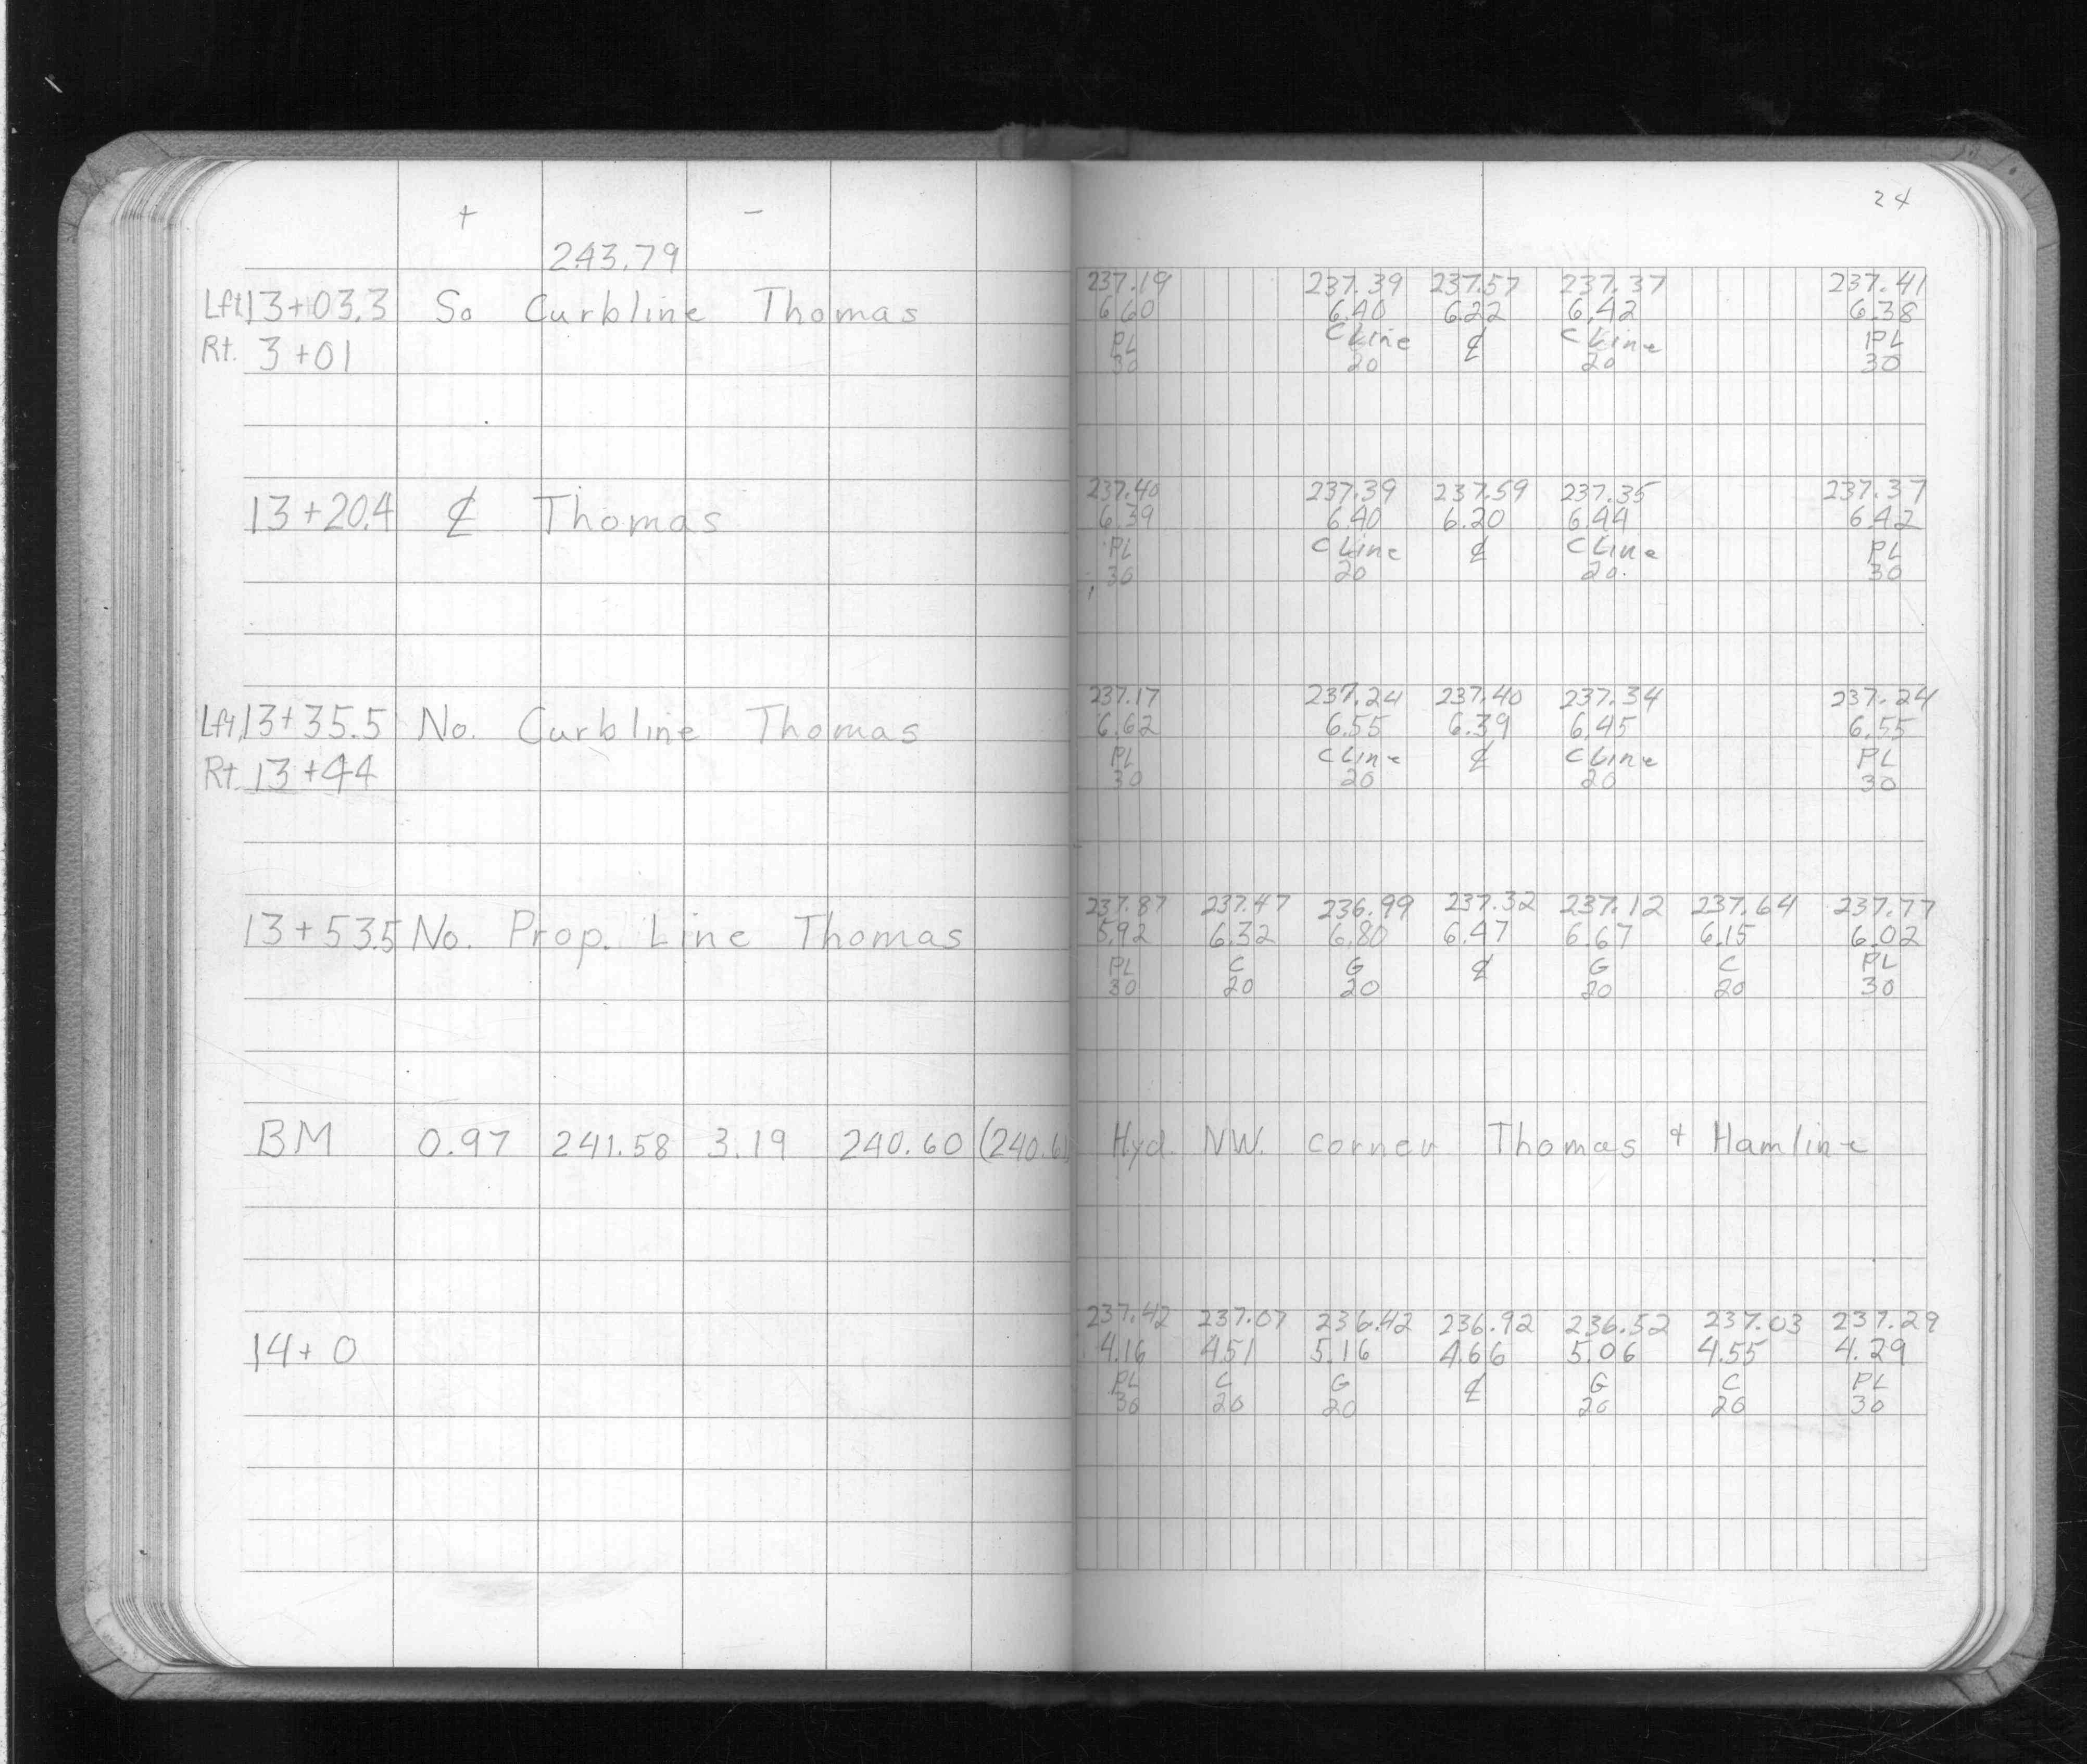 + -
243.79
Lft 13+03.3 So Curbline Thomas
Rt. 3+01
13+20.4 ₵ Thomas
Lft. 13+35.5 No. Curbline Thomas
Rt. 13+44
13+53.5 No. Prop. Line Thomas
BM 0.97 241.58 3.19 240.60 (240.61
14+0
24
237.19 237.39 237.57 237.37 237.41
6.60 6.40 6.22 6.42 6.38
PL CLine ₵ CLine PL
30 20 20 30
237.40 237.39 237.59 237.35 237.37
6.39 6.40 6.20 6.44 6.42
PL CLine ₵ CLine PL
30 20 20. 30
237.17 237.24 237.40 237.34 237.24
6.62 6.55 6.39 6.45 6.55
PL CLine ₵ CLine PL
30 20 20 30
237.87 237.47 236.99 237.32 237.12 237.64 237.77
5.92 6.32 6.80 6.47 6.67 6.15 6.02
PL C G ₵ G C PL
30 20 20 20 20 30
Hyd. NW. corner Thomas & Hamline
237.42 237.07 236.42 236.92 236.52 237.03 237.29
4.16 4.51 5.16 4.66 5.06 4.55 4.29
PL C G ₵ G C PL
30 20 20 20 20 30